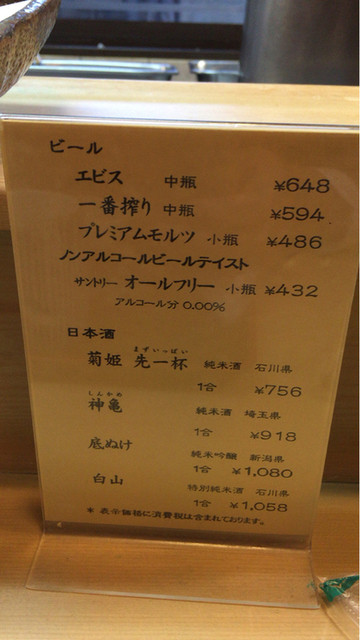 ビール
エビス 中瓶 ¥648
一番搾り 中瓶 ¥594
プレミアムモルツ 小瓶 ¥486
ノンアルコールビールテイスト
サントリー オールフリー 小瓶 ¥432
アルコール分 0.00%
日本酒
まずいっぱい
菊姫 先一杯 純米酒 石川県
1合 ¥756
しんかめ
神亀 純米酒 埼玉県
1合 ¥918
底ぬけ 純米吟醸 新潟県
1合 ¥1,080
白山 特別純米酒 石川県
1合 ¥1,058
* 表示価格に消費税は含まれております。